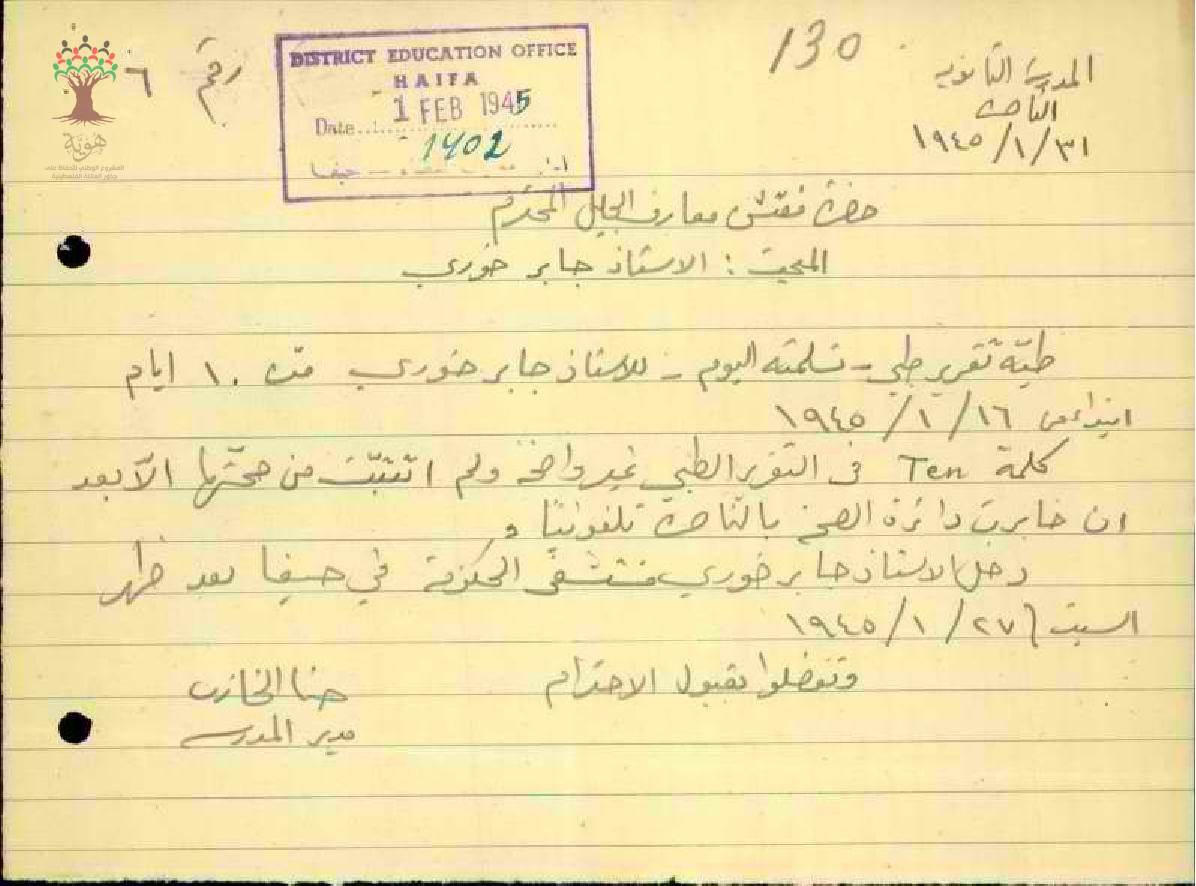 المدرسة الثانوية
الناصرة
١٩٤٥/١/٣١
130
رقم ٦
DISTRICT EDUCATION OFFICE
HAIFA
Date 1 FEB 1945
1402
حيفا
هُويّة
المشروع الوطني للحفاظ على
جذور العائلة الفلسطينية
حضرة مفتش معارف الجليل المحترم
المبحث : الاستاذ جابر خوري
طيّه تقرير طبي - تسلمته اليوم - للاستاذ جابر خوري مدة ١٠ ايام
ابتداء من ١٦ / ١ / ١٩٤٥
كلمة Ten في التقرير الطبي غير واضحة ولم اتثبّت من صحّتها الاّ بعد
ان خابرت دائرة الصحة بالناصرة تلفونيًا و
دخل الاستاذ جابر خوري مستشفى الحكومة في حيفا بعد ظهر
السبت ٢٧ / ١ / ١٩٤٥
وتفضلوا بقبول الاحترام
حنا الخازن
مدير المدرسة